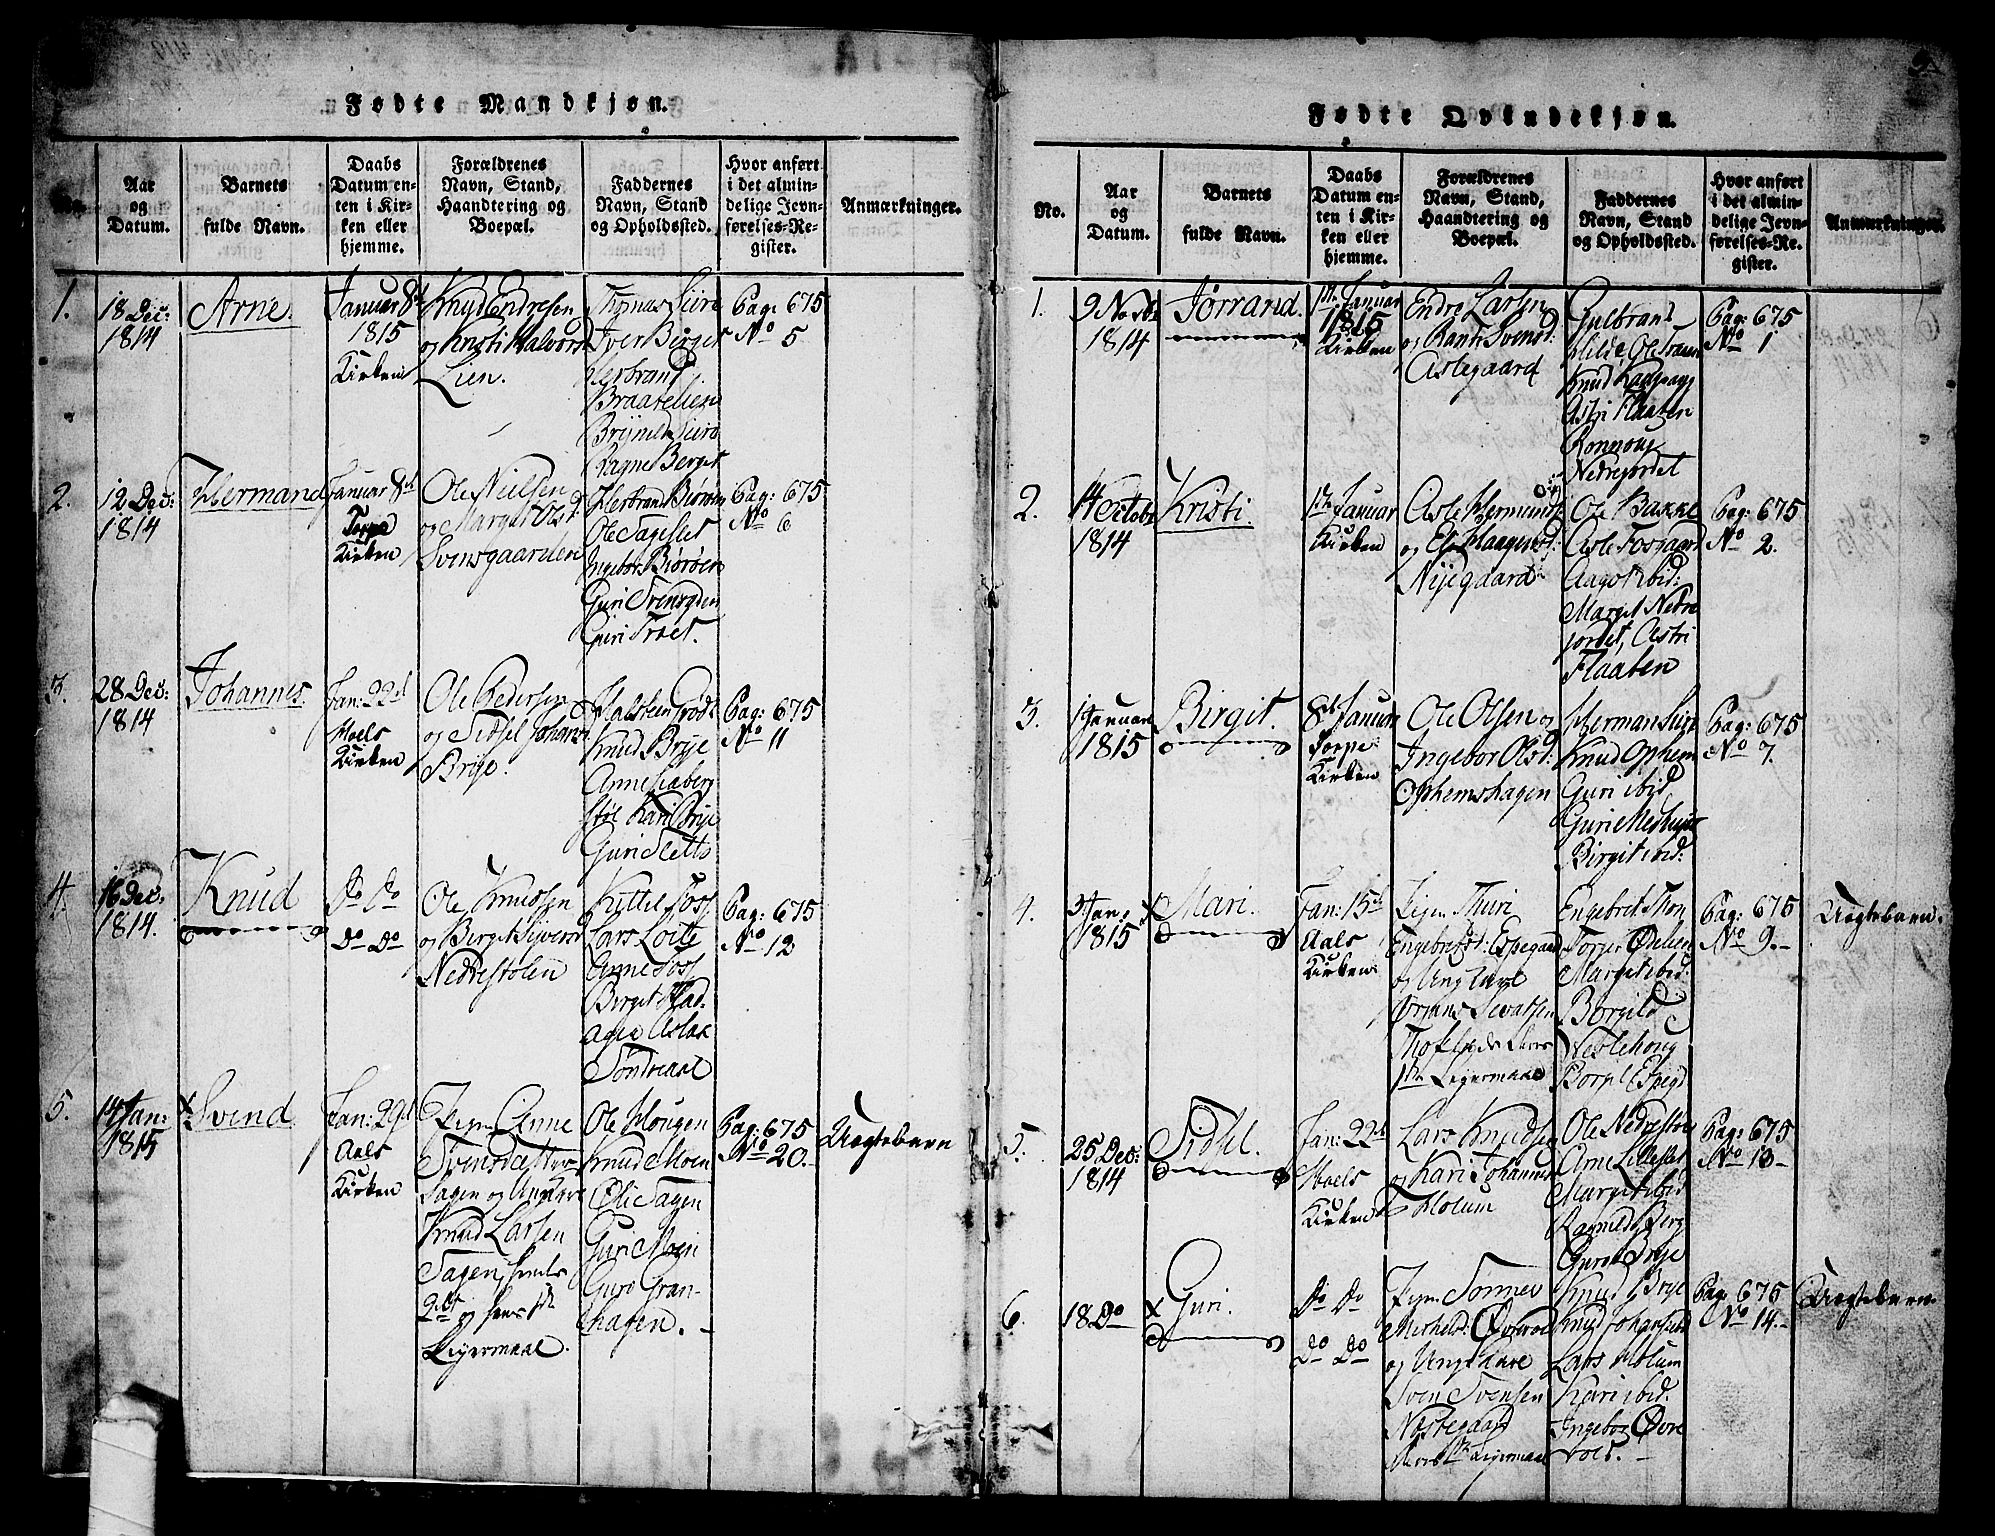 Fødte Mandkjøn.
Aar
og
Datum.
Barnets
fulde Navn.
Daabs
Datum en-
ten i Kir-
ken eller
hjemme.
Forældrenes
Navn, Stand,
Haandtering og
Boepæl.
Faddernes
Navn, Stand
og Opholdssted.
Hvor anført
i det almin-
delige Jevn-
førelses-Re-
gister.
Anmærkninger.
1.
18 Dec:
1814
Arne
Januar 8de
1815
Kirken
Knud Endresen
og Kristi Halvors
Lien.
Iver Berget
Herbrand
Braatelien
Ragne Berget
Pag: 675
No 5
2.
12 Dec:
1814
Hermand
Januar 8de
Torpe
Kirken
Ole Nielsen
og Margit Olsd:
Svensgaarden
Herbrand Biøröen
Ole Tageslet
Ingebor Biøröen
Guri Svensgden
Guri Træt.
Pag: 675
No 6
3.
28 Dec:
1814
Johannes.
Jan: 22de
Hoels
Kirken
Ole Pedersen
og Sidsel Johans
Brije.
Knud Brije
Anne Liaberg
støl Kari Brije
Guri Sletto
Pag: 675
No 11
4.
16 Dec.
1814.
Knud
Do Do
Do Do
Ole Knudsen
og Birget Sijversd
Nedrestølen
Kittil Toss
Lars Loite
Anne Toss
Birget Had-
Aslak
Söndreaal
Pag: 675
No 12
5.
14 Jan:
1815
x Svend
Jan: 29de
Aals
Kirken
Pigen Anne
Svensdatter
Sagen og Ungkarl
Knud Larsen
Sagen, hendes
2det og hans 1te
Leijermaal.
Ole Hougen
Knud Moen
Oli Sagen
Guri Moen
Guro Gran-
hagen. -
Pag: 675
No 20.
Uægtebarn
Fødte Qvindekjøn.
No.
Aar
og
Datum.
Barnets
fulde Navn.
Daabs
Datum en-
ten i Kir-
ken eller
hjemme.
Forældrenes
Navn, Stand,
Haandtering og
Boepæl.
Faddernes
Navn, Stand
og Opholdssted.
Hvor anført
i det almin-
delige Jevn-
førelses-Re-
gister.
Anmærkninger.
1.
9 Novbr
1814
Jørrand.
1te Januar
1815
Kirken
Endre Larsen
og Svensd:
Aslegaard
Gulbrand
Hilde Ole
Knud
Astri Flaaten
Ronnoug
Nedrejordet
Pag: 675
No 1
2.
14 October
1814
Kristi.
1te Januar
Kirken
Asle Hermunds
og Eli Haagensd:
Nijegaard
Ole Bakke
Asle Fosgaard
Aagot ibid:
Margit Nedre
jordet, Astri
Flaaten
Pag: 675
No 2.
3.
1 Januar
1815
Birgit.
8de Januar
Torpe
Kirken
Ole Olsen og
Ingebor Olsd:
Ophemshagen
Knud Ophem
Guri ibid
Birgit ibid:
Pag: 675
No 7.
4.
3 Jan:
1815
x Mari.
Jan: 15de
Aals
Kirken
Pigen Thuri
Engebretsd: Espegaard
og Ungkarl
1te Leijermaal
Engebret Thon
Torger Ødelien
Margit ibid:
Borgild
Veslehoug
Pag: 675
No 9.
Uægtebarn.
5.
25 Dec:
1814
Sidsel.
Jan: 22de
Hoels
Kirken
Lars Knudsen
og Kari Johannesd
Holum
Ole Nedrestølen
Arne Lilleslet
Margit ibid
Ragnild Berg
Guro Brije
Pag: 675
No 13
6.
18 Do
x Guri.
Do Do
Do Do
Pigen
og Ungkarl
Sven Svensen
Leijermaal
Knud Brije
Lars Holum
Kari ibid.
Ingebor Øvre
Pag: 675
No 14.
Uægtebarn.